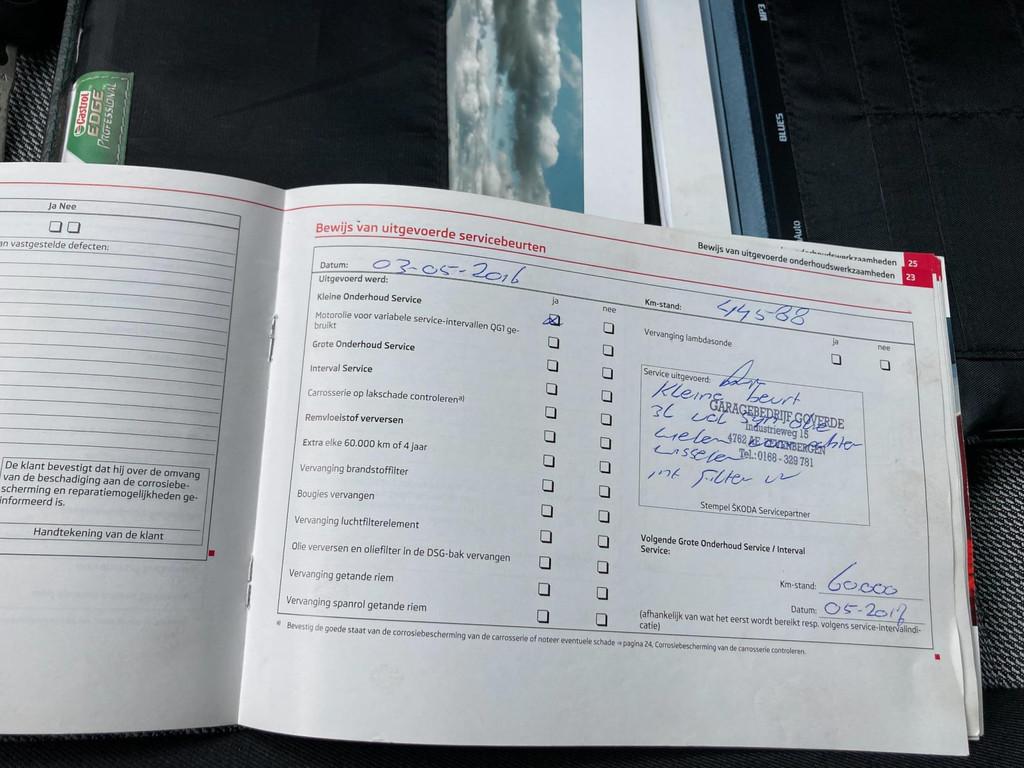 Castrol
EDGE
PROFESSIONAL
MP3
BLUES
Auto
Ja Nee
an vastgestelde defecten:
De klant bevestigt dat hij over de omvang
van de beschadiging aan de corrosiebe-
scherming en reparatiemogelijkheden ge-
informeerd is.
Handtekening van de klant
25
Bewijs van uitgevoerde onderhoudswerkzaamheden 23
Bewijs van uitgevoerde servicebeurten
Datum: 03-05-2016
Km-stand: 44588
Uitgevoerd werd:
ja nee
Kleine Onderhoud Service
Motorolie voor variabele service-intervallen QG1 ge-
bruikt
Grote Onderhoud Service
Interval Service
Carrosserie op lakschade controleren a)
Remvloeistof verversen
Extra elke 60.000 km of 4 jaar
Vervanging brandstoffilter
Bougies vervangen
Vervanging luchtfilterelement
Olie verversen en oliefilter in de DSG-bak vervangen
Vervanging getande riem
Vervanging spanrol getande riem
ja nee
Vervanging lambdasonde
Service uitgevoerd:
Kleine beurt
GARAGEBEDRIJF GOVERDE
3L vol syn olie
Industrieweg 15
wielen achter
4762 AE ZEVENBERGEN
wisselen
Tel.: 0168 - 329 781
int filter
Stempel ŠKODA Servicepartner
Volgende Grote Onderhoud Service / Interval
Service:
Km-stand: 60.000
Datum: 05-2017
(afhankelijk van wat het eerst wordt bereikt resp. volgens service-intervalindi-
catie)
a) Bevestig de goede staat van de corrosiebescherming van de carrosserie of noteer eventuele schade ⇒ pagina 24, Corrosiebescherming van de carrosserie controleren.